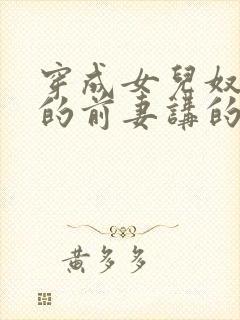 穿成女兒奴
的前妻講的
黃多多